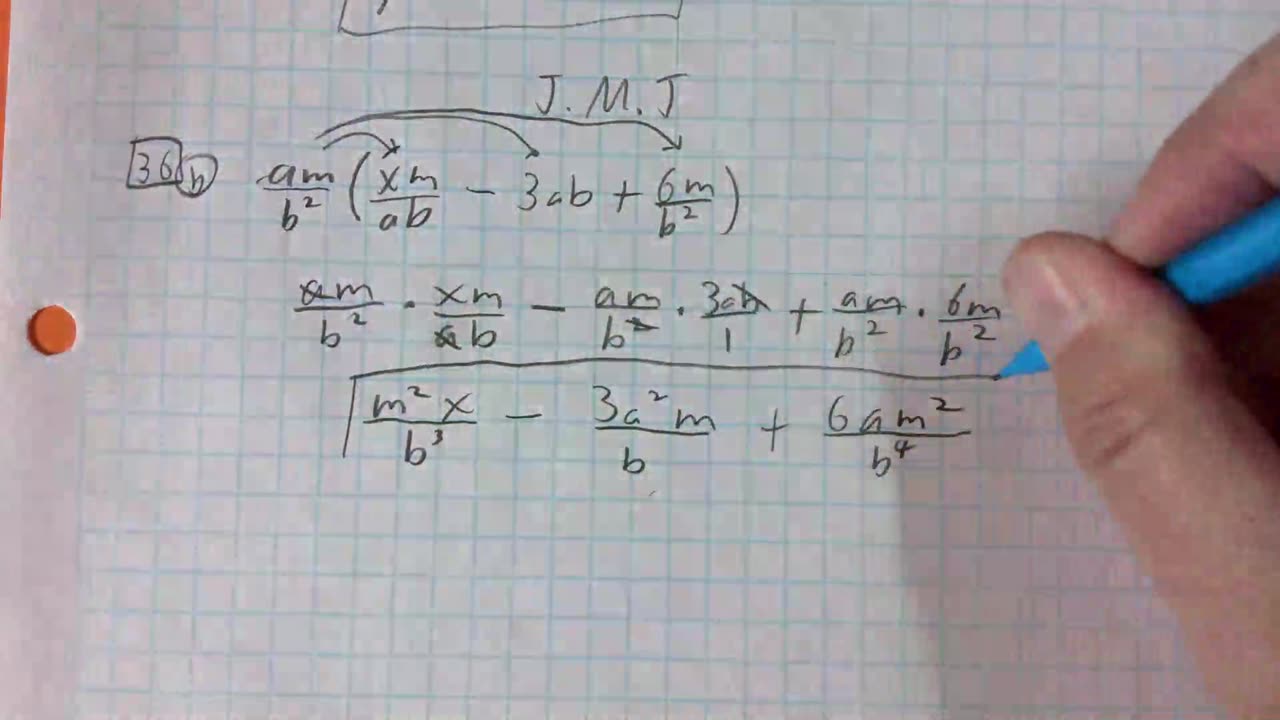 J.M.J
36 b am/b² (xm/ab − 3ab + 6m/b²)
am/b² · xm/ab − am/b² · 3ab/1 + am/b² · 6m/b²
m²x/b³ − 3a²m/b + 6am²/b⁴